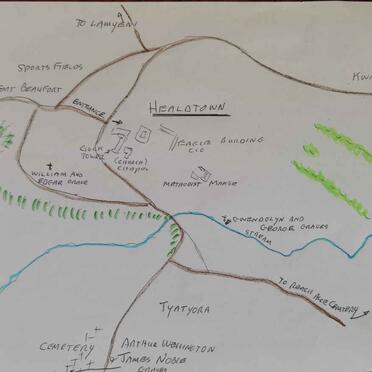 TO LAMYENI
SPORTS FIELDS
FORT BEAUFORT
KWA
ENTRANCE
HEALDTOWN
EAGLE BUILDING
CLOCK
TOWER
(CHURCH)
METHODIST MANSE
WILLIAM AND
EDGAR GRAVE
GWENDOLYN AND
GEORGE GRAVES
STREAM
TO
CEMETERY
TYATYORA
CEMETERY
ARTHUR WELLINGTON
JAMES NOBLE
GRAVES